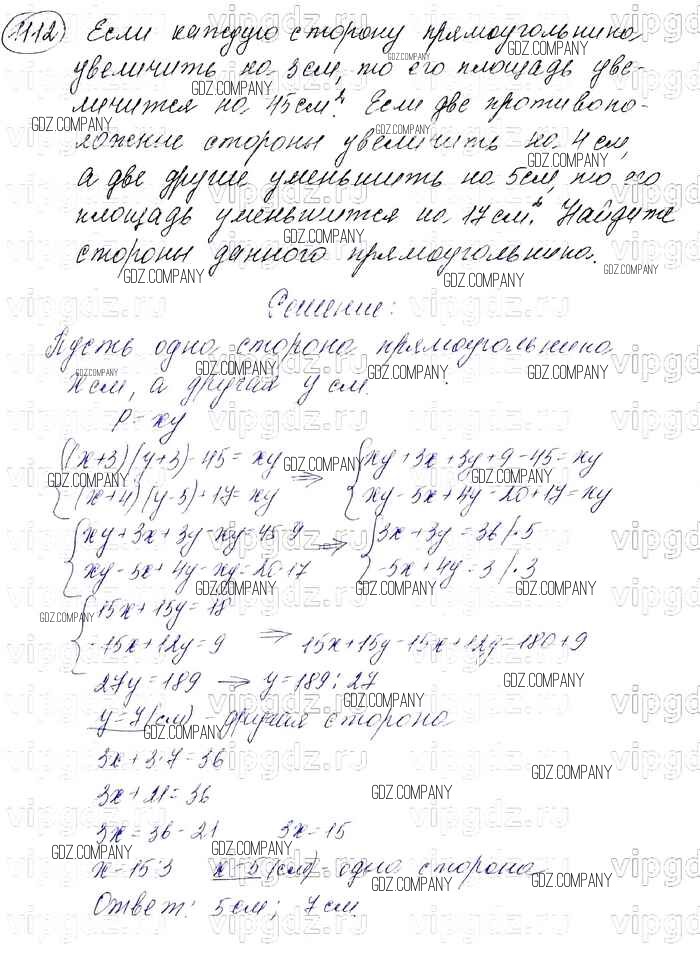 1112) Если каждую сторону прямоугольника
увеличить на 3 см, то его площадь уве-
личится на 45 см². Если две противопо-
ложные стороны увеличить на 4 см,
а две другие уменьшить на 5 см, то его
площадь уменьшится на 17 см². Найдите
стороны данного прямоугольника.
Решение:
Пусть одна сторона прямоугольника
x см, а другая y см.
P = xy
{(x+3)(y+3)-45=xy ⇒ {xy+3x+3y+9-45=xy
{(x+4)(y-5)+17=xy {xy-5x+4y-20+17=xy
{xy+3x+3y-xy=45-9 ⇒ {3x+3y=36 |·5
{xy-5x+4y-xy=20-17 {-5x+4y=3 |·3
{15x+15y=18
{-15x+12y=9 ⇒ 15x+15y-15x+12y=180+9
27y=189 → y=189:27
y=7 (см) - другая сторона
3x+3·7=36
3x+21=36
3x=36-21 3x=15
x=15:3 x=5 (см) - одна сторона
Ответ: 5 см; 7 см.
GDZ.COMPANY
vipgdz.ru